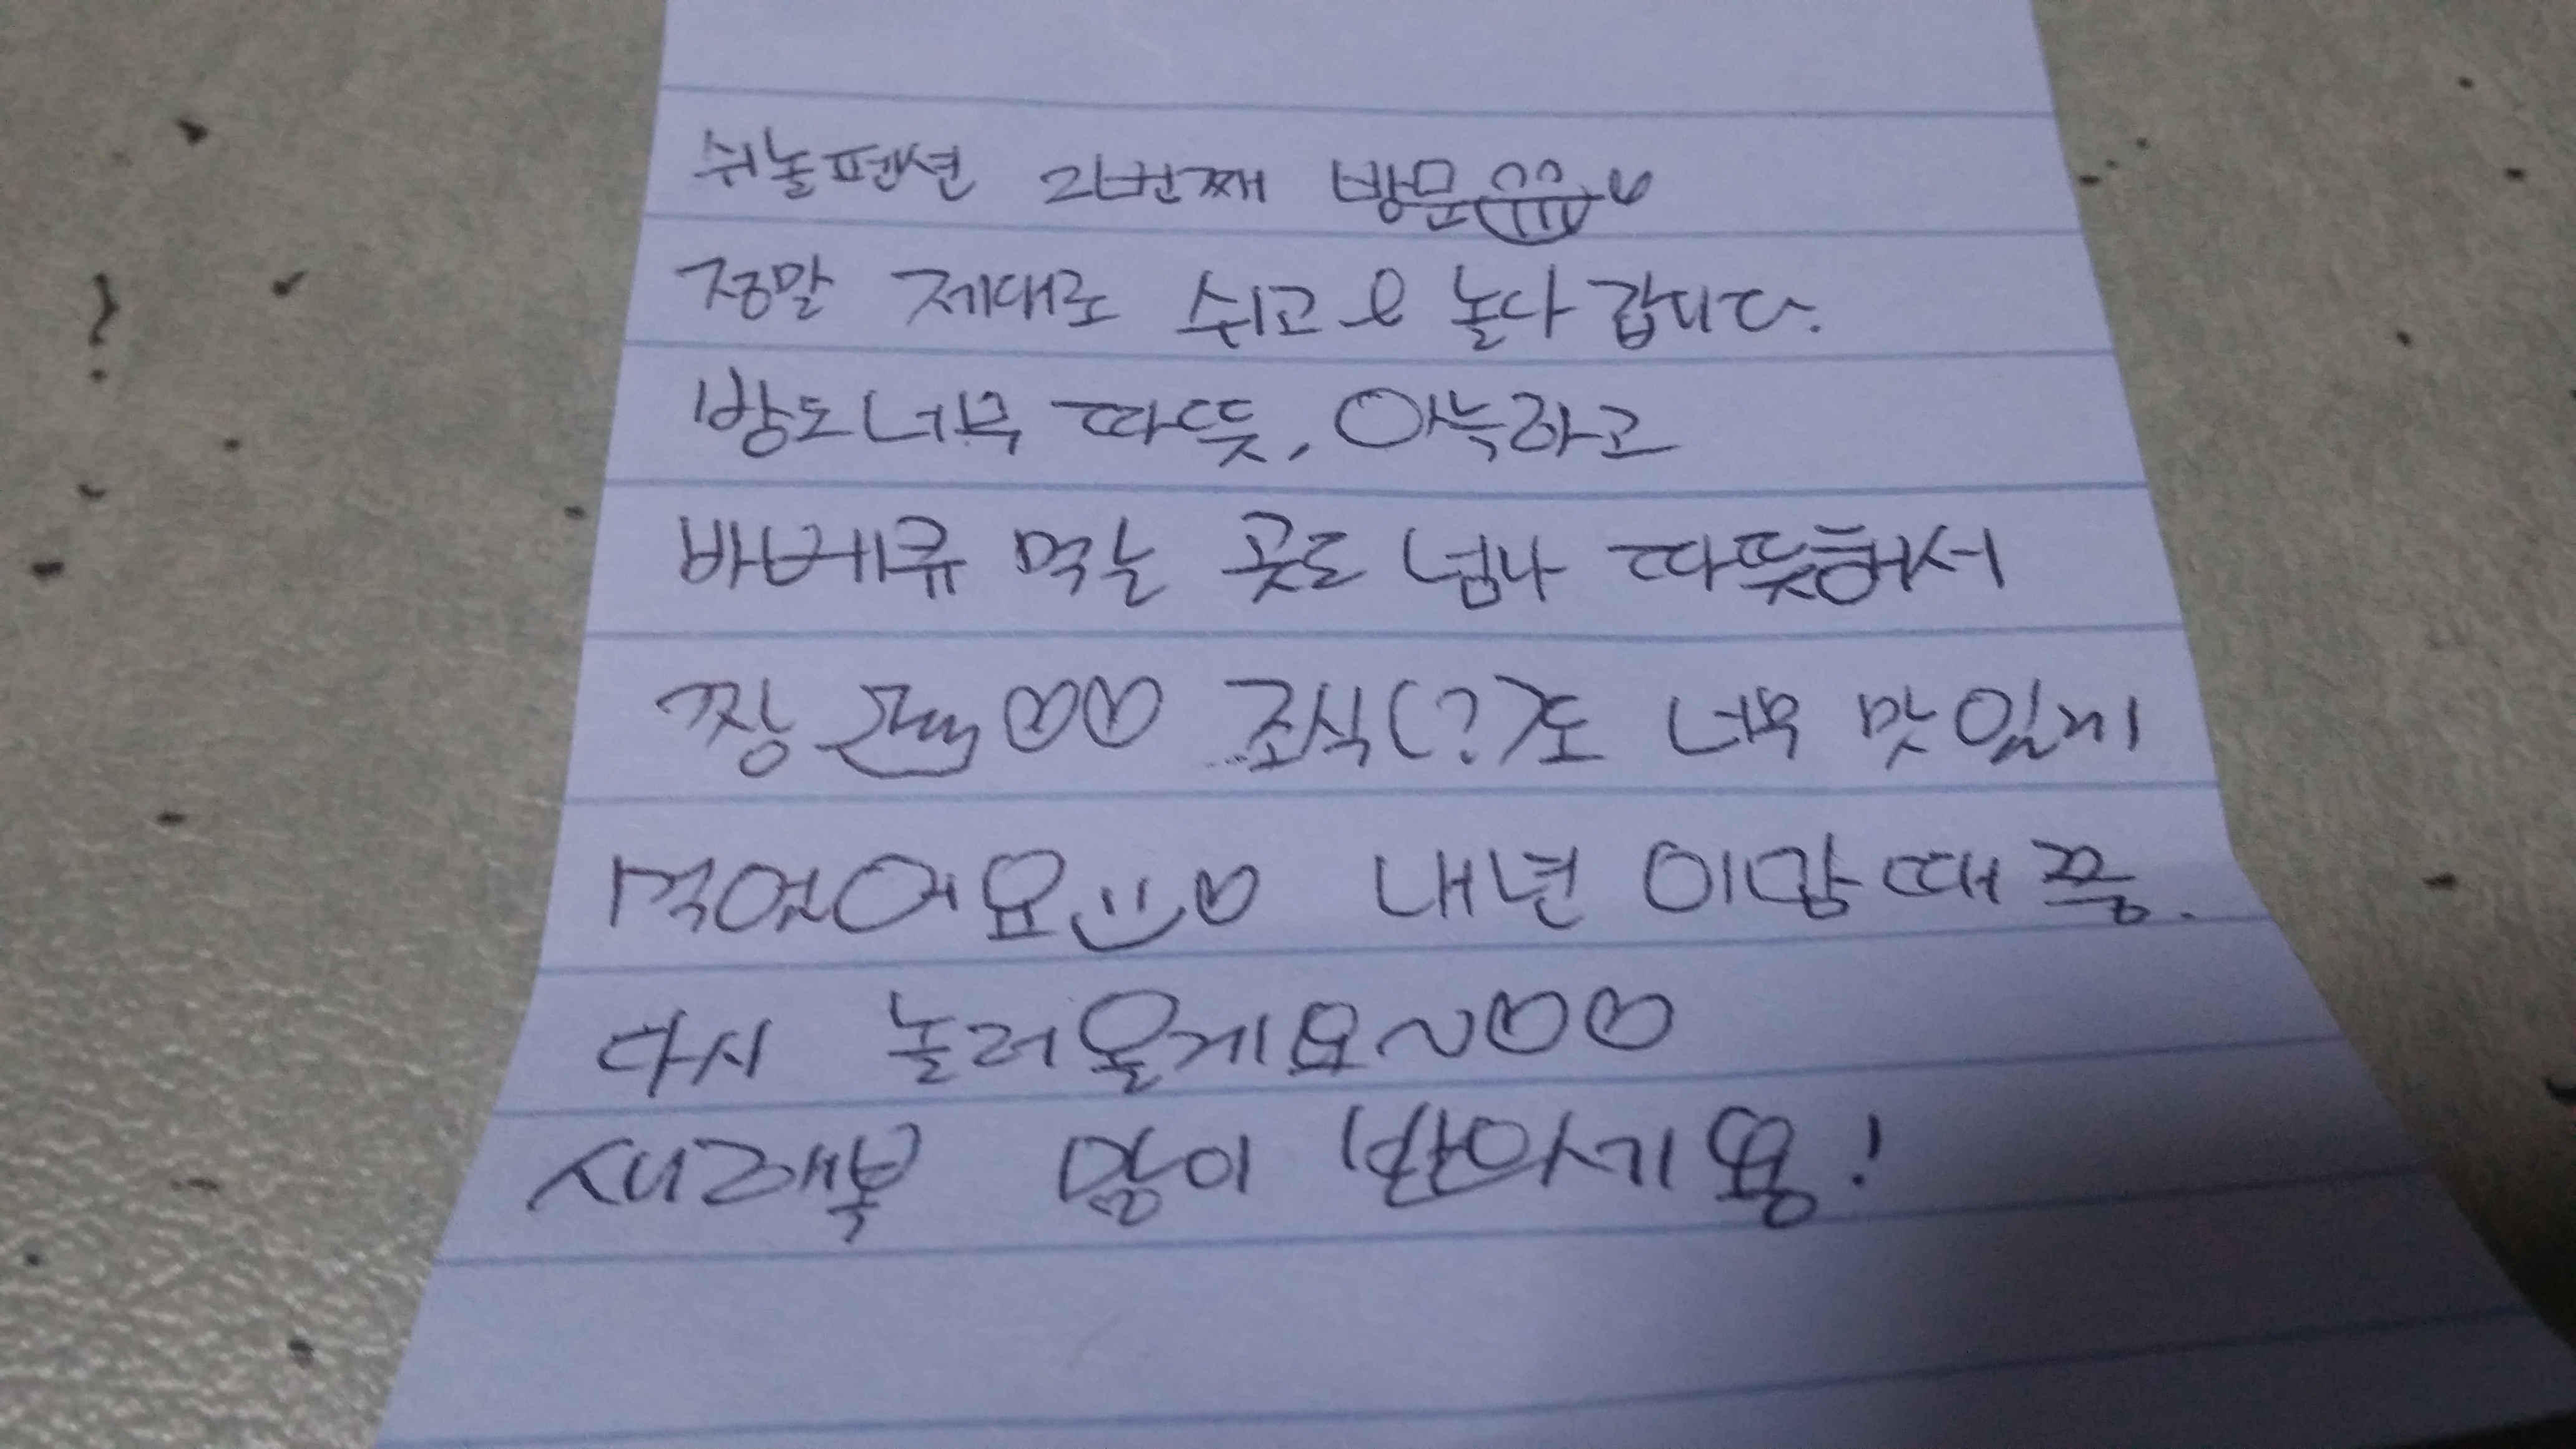 쉬놀펜션 2번째 방문
정말 제대로 쉬고 놀다 갑니다.
방도 너무 따뜻, 아늑하고
바베큐 먹는 곳도 넘나 따뜻해서
짱 ♡♡ 조식(?)도 너무 맛있게
먹었어요♡ 내년 이맘때 쯤.
다시 놀러올게요~♡♡
새해복 많이 받아시기용!